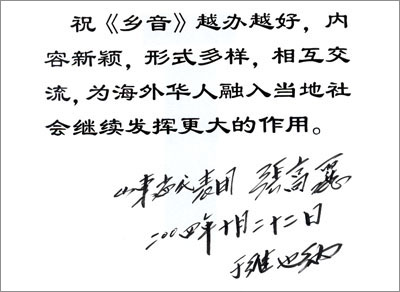 祝《乡音》越办越好，内
容新颖，形式多样，相互交
流，为海外华人融入当地社
会继续发挥更大的作用。
山东 代表团 張高麗
二00四年十月二十二日
于维也纳